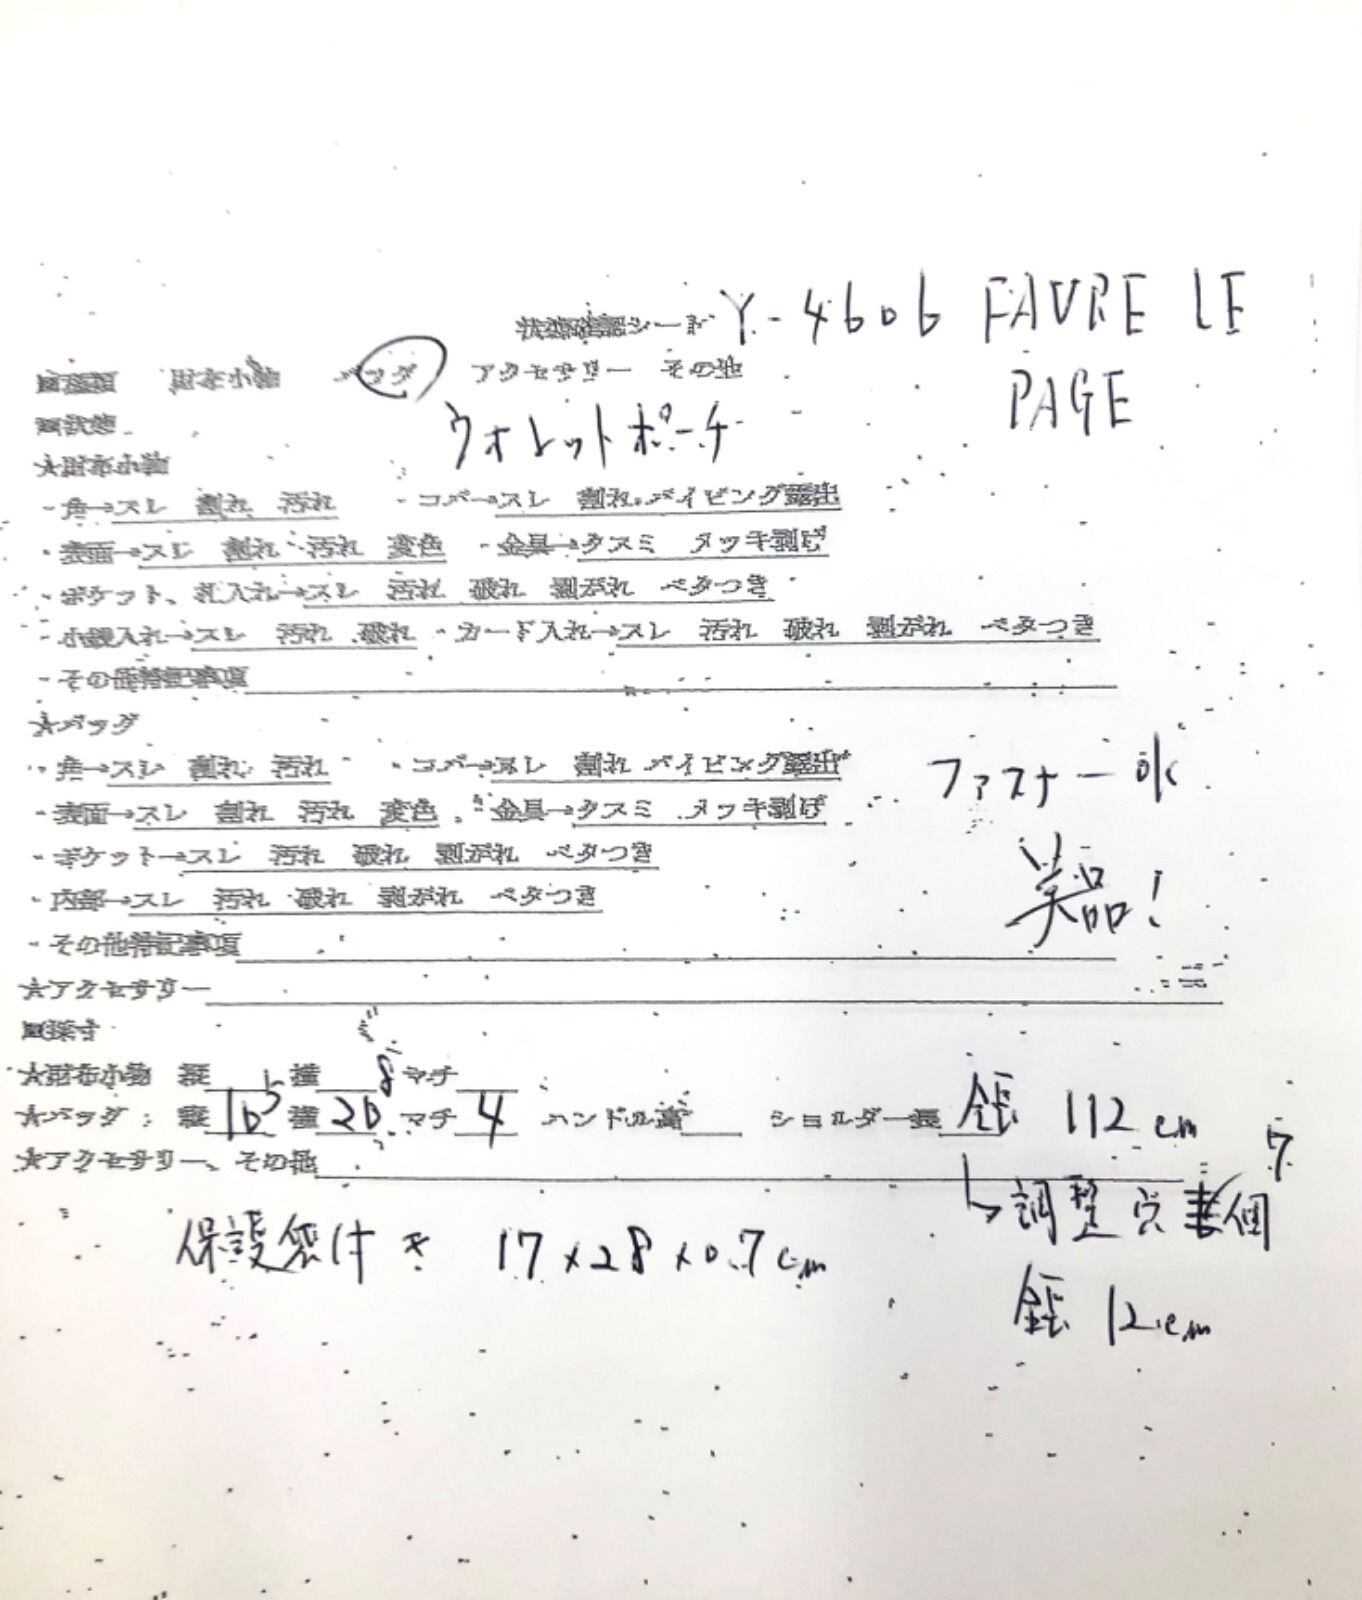 状態確認シート Y-4606 FAURE LE
PAGE
■種類 財布小物 バッグ アクセサリー その他
■状態 ウォレットポーチ
★財布小物
・角→スレ 割れ 汚れ ・コバ→スレ 割れ パイピング露出
・表面→スレ 割れ 汚れ 変色 ・金具→クスミ メッキ剥げ
・ポケット、札入れ→スレ 汚れ 破れ 剥がれ ベタつき
・小銭入れ→スレ 汚れ 破れ ・カード入れ→スレ 汚れ 破れ 剥がれ ベタつき
・その他特記事項
★バッグ
・角→スレ 割れ 汚れ ・コバ→スレ 割れ パイピング露出
ファスナーOK
・表面→スレ 割れ 汚れ 変色 ・金具→クスミ メッキ剥げ
・ポケット→スレ 汚れ 破れ 剥がれ ベタつき
美品!
・内部→スレ 汚れ 破れ 剥がれ ベタつき
・その他特記事項
★アクセサリー
■採寸
★財布小物 縦 横 マチ
★バッグ:縦 16.5 横 26.8 マチ 4 ハンドル高 ショルダー長 全長 112cm
★アクセサリー、その他
↳調整穴 7個
保護袋付き 17×28×0.7cm
全長 12cm